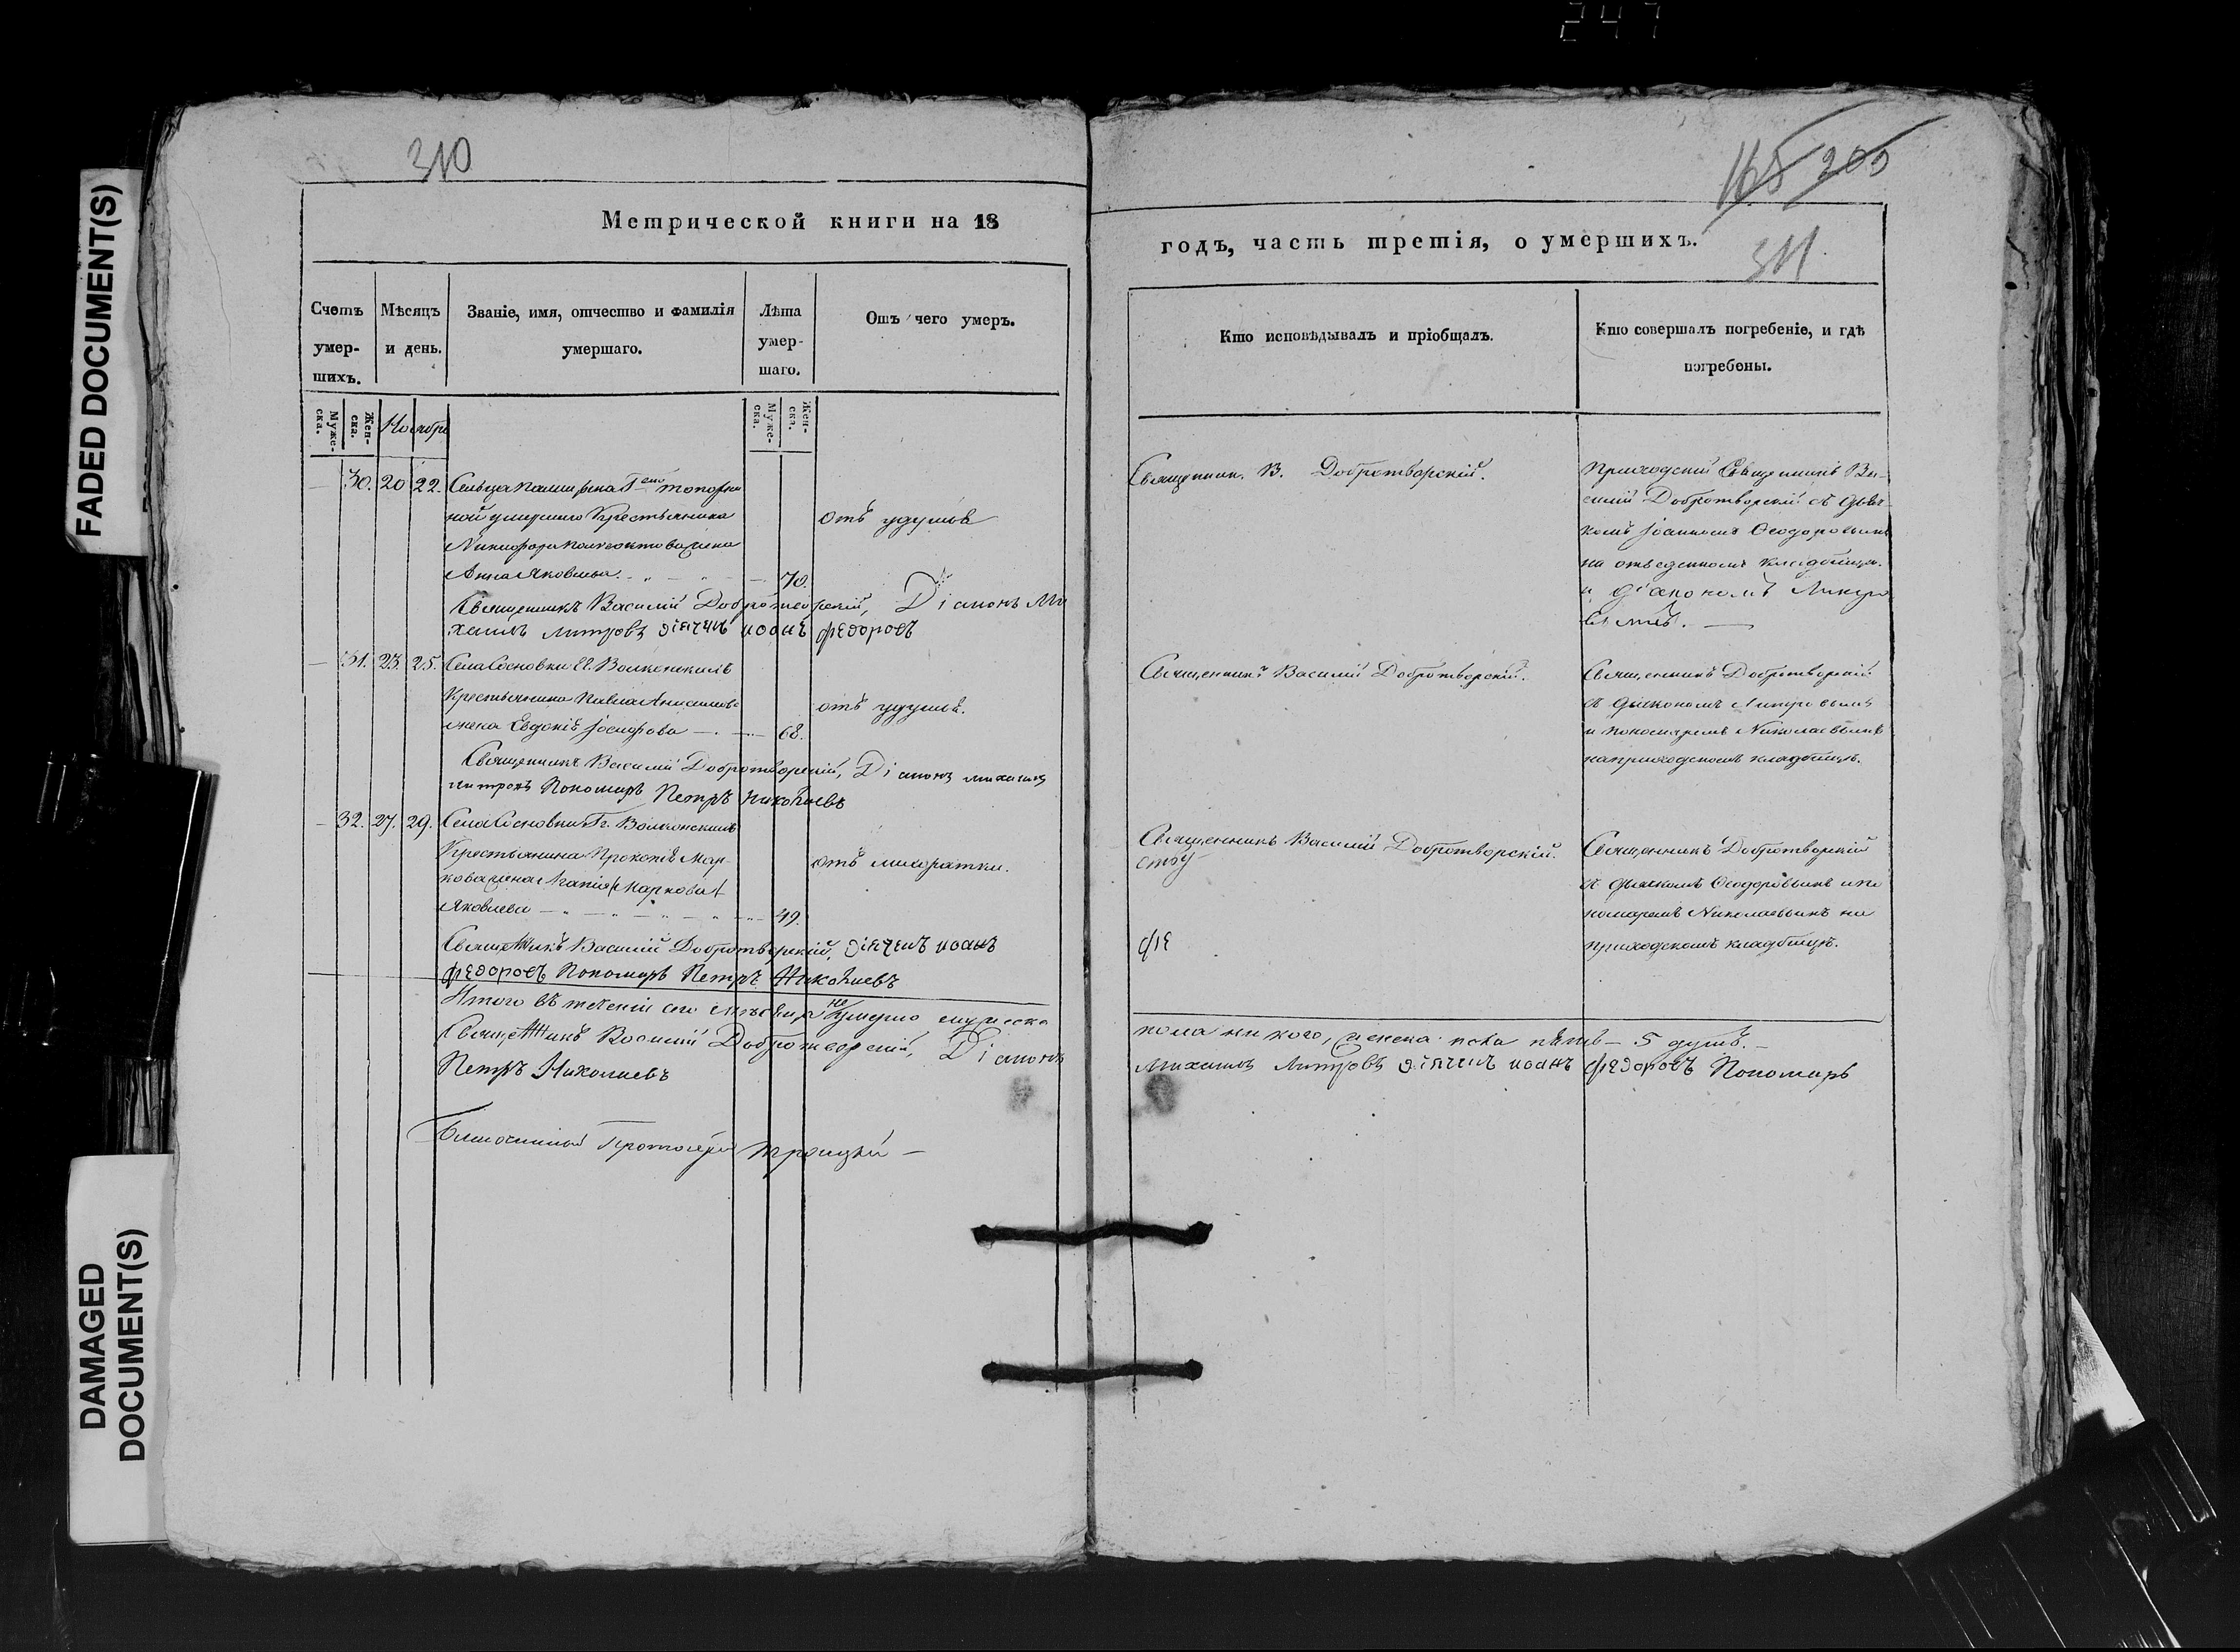 247
FADED DOCUMENT(S)
DAMAGED DOCUMENT(S)
310
Метрической книги на 18
Счетъ умер- шихъ.
Мѣсяцъ и день.
Званіе, имя, отчество и фамилія умершаго.
Лѣта умер- шаго.
Отъ чего умеръ.
Муже- ска.
Жен- ска.
Ноябрь
Муже- ска.
Жен- ска.
30. 20 22. Сельца
ной умершаго Крестьянина
отъ удушья
Никифора жена
Анна Яковлева 70.
Священникъ Василій Добротворскій, Діаконъ Ми
хаилъ Митровъ діячекъ иоанъ федоровъ
31. 23. 25. Села Сосновки Г. Волконскихъ
Крестьянина Павла Анисимова
отъ удушья.
жена Евдокія Іосифова 68.
Священникъ Василій Добротворскій, Діаконъ михаилъ
митровъ Пономарь Петръ Николаевъ
32. 27. 29. Села Сосновки Гг. Волконскихъ
Крестьянина Прокопія Мар-
отъ лихоратки.
кова жена Агапія (Маркова)
Яковлева 49.
Священникъ Василій Добротворскій, діячекъ иоанъ
федоровъ Пономарь Петръ Николаевъ
Итого въ теченіи сего мѣсяца не умерло мужеска
Священникъ Василій Добротворскій, Діаконъ
Петръ Николаевъ
Благочинный Протоіерей Троицкій
168 205
годъ, часть третія, о умершихъ.
311.
Кто исповѣдывалъ и пріобщалъ.
Кто совершалъ погребеніе, и гдѣ погребены.
Священник. В. Добротворскій.
Приходскій Священникъ Ва-
силій Добротворскій съ дьяч-
комъ Іоанномъ Ѳеодоровымъ
на отведенномъ кладбищѣ.
и діакономъ Митро
вымъ.
Священникъ Василій Добротворскій.
Священникъ Добротворскій
съ діакономъ Митровымъ
и пономаремъ Николаевымъ
на приходскомъ кладбищѣ.
Священникъ Василій Добротворскій.
Священникъ Добротворскій
съ дьячкомъ Ѳеодоровымъ и по
номаремъ Николаевымъ на
приходскомъ кладбищѣ.
пола ни кого, женска пола пять - 5 душъ.
михаилъ Митровъ діячекъ иоанъ федоровъ Пономарь